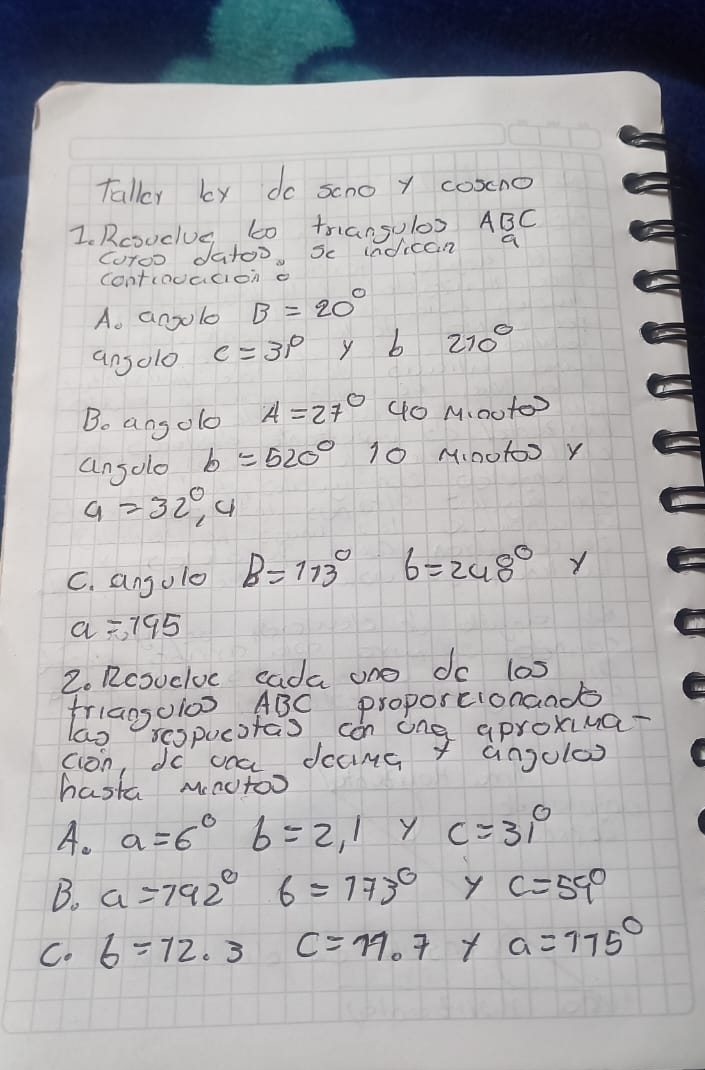 Taller ley de seno y coseno
1. Resuelve los triangulos ABC
cuyos datos. se indican a
continuación o
A. angulo B = 20°
angulo c = 31° y b 210°
B. angulo A = 27° 40 Minutos
angulo b = 520° 10 Minutos y
a = 32°,4
C. angulo B = 113° b = 248° y
a = 195
2. Resuelve cada uno de los
triangulos ABC proporcionando
las respuestas con una aproxima-
ción, de una decima y angulos
hasta Minutos
A. a = 6° b = 2,1 y c = 31°
B. a = 192° b = 173° y c = 59°
C. b = 12.3 C = 19.7 y a = 115°